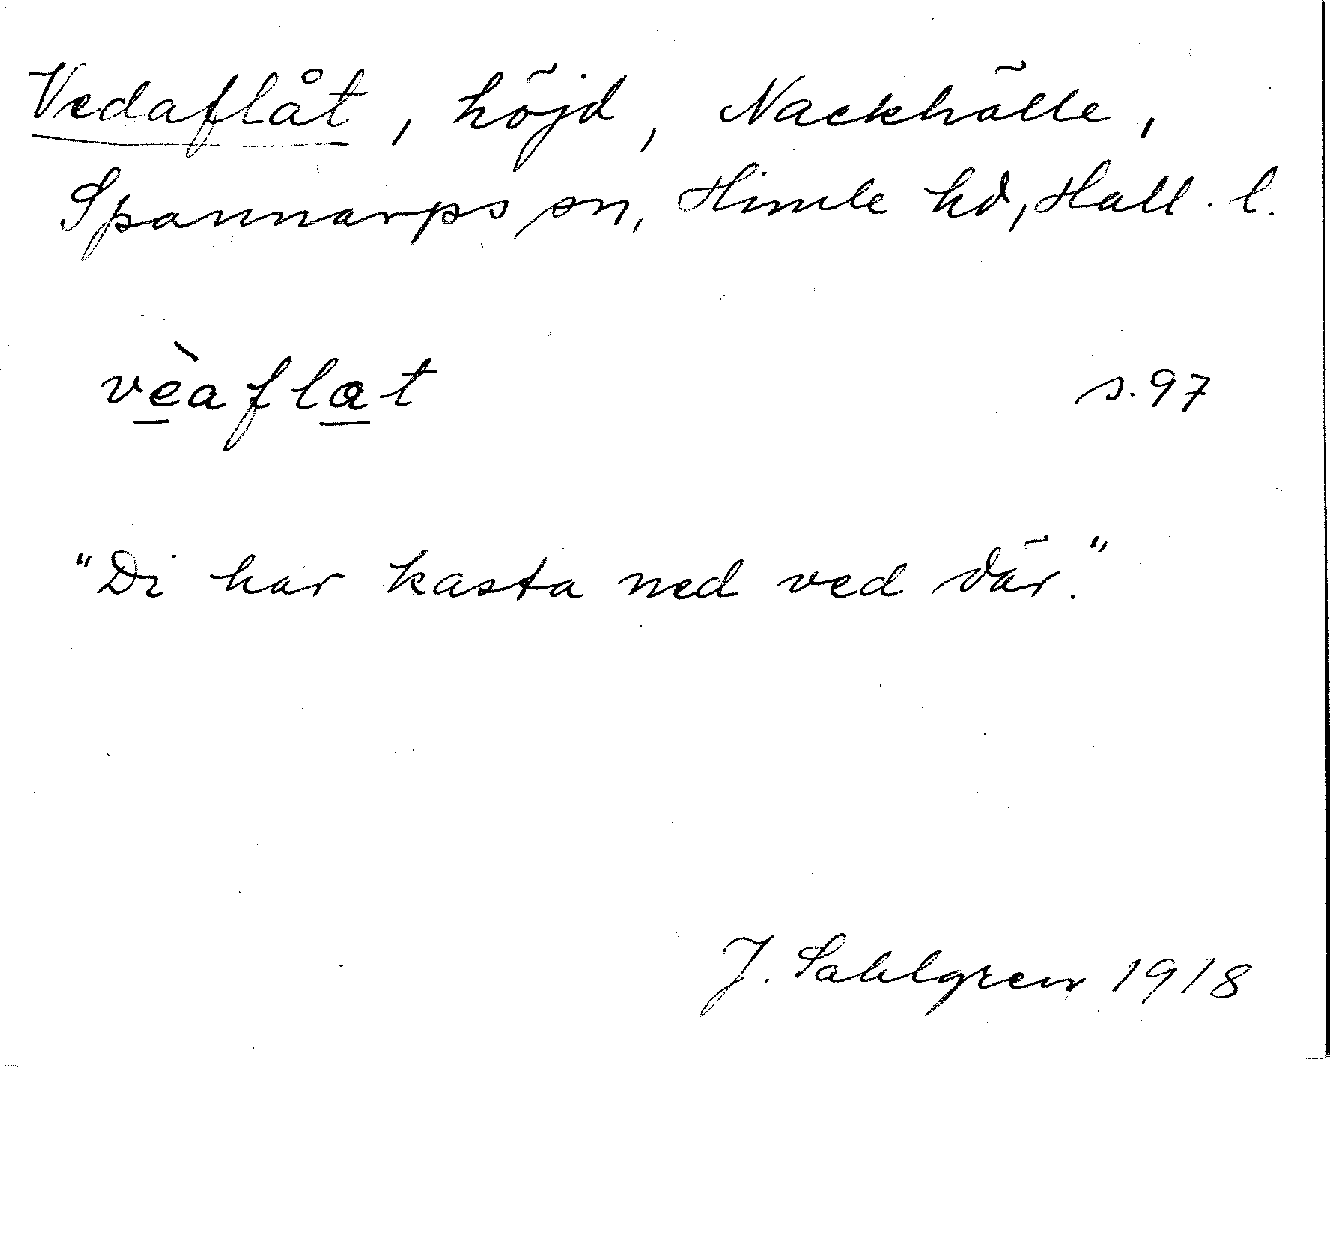 Vedaflåt, höjd, Nackhälle,
Spannarps sn, Himle hd, Hall. l.
vèaflat s. 97
"Di har kasta ned ved där."
J. Sahlgren 1918